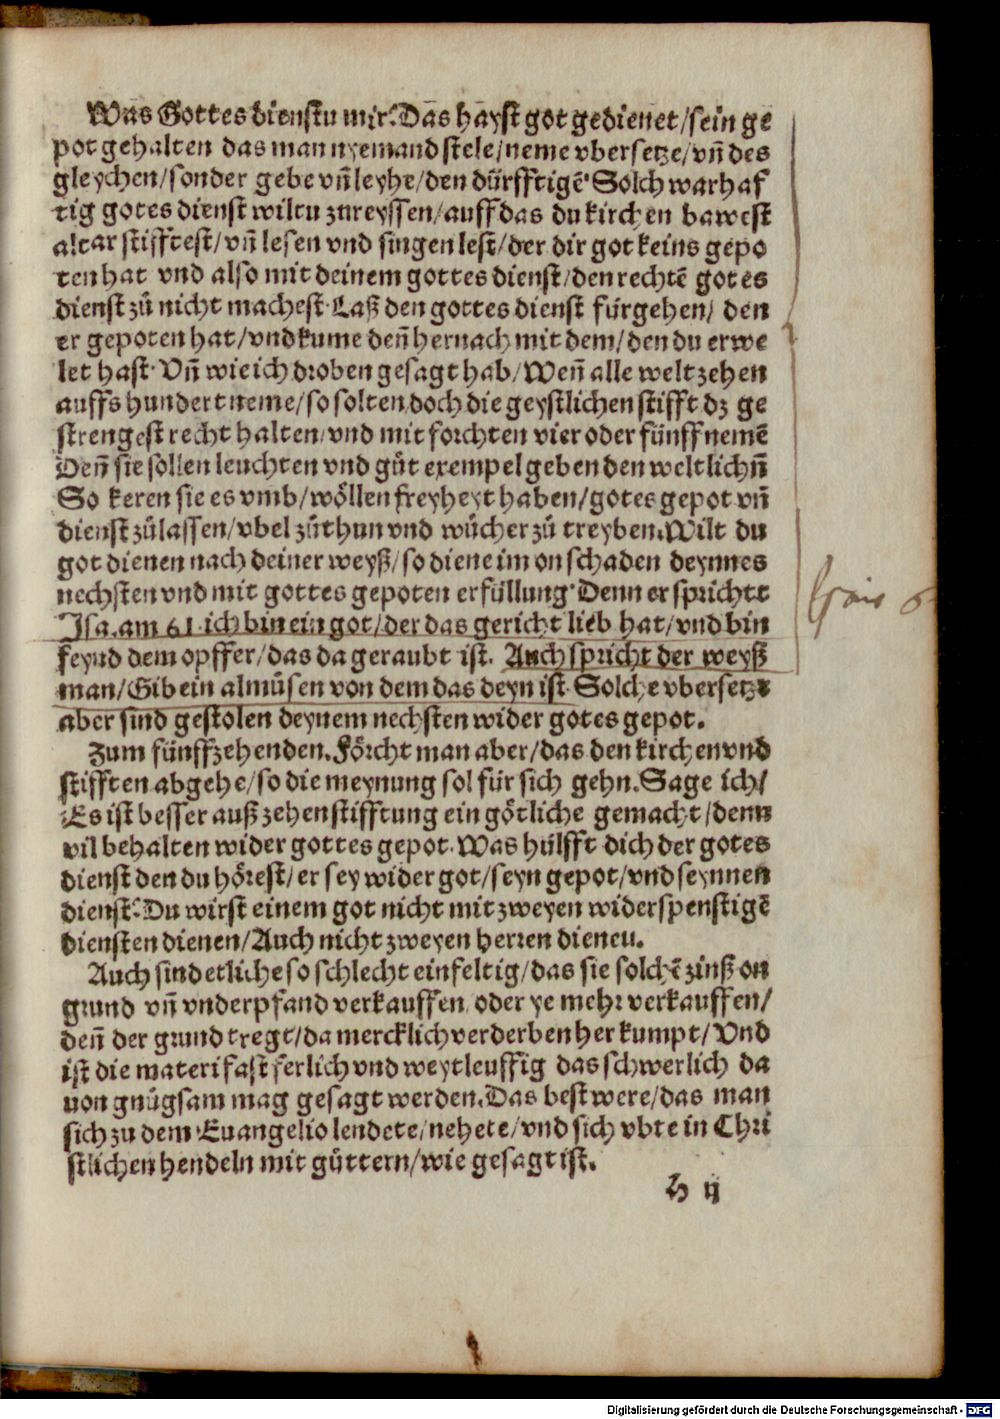 Was Gottes dienstu mir? Das hayst got gedienet/sein ge
pot gehalten das man nyemand stele/neme vbersetze/vñ des
gleychen/sonder gebe vñ leyhe/den dürfftigẽ Solch warhaf
tig gotes dienst wiltu zureyssen/auff das du kirchen bawest
altar stifftest/vñ lesen vnd singen lest/der dir got keins gepo
ten hat vnd also mit deinem gottes dienst/den rechtẽ gotes
dienst zů nicht machest. Laß den gottes dienst fürgehen/ den
er gepoten hat/vnd kume deñ hernach mit dem/den du erwe
let hast. Vñ wie ich droben gesagt hab/Weñ alle welt zehen
auffs hundert neme/so solten doch die geystlichen stifft dz ge
strengest recht halten/vnd mit forchten vier oder fünff nemẽ
Deñ sie sollen leuchten vnd gůt exempel geben den weltlichñ
So keren sie es vmb/wöllen freyheyt haben/gotes gepot vñ
dienst zůlassen/vbel zůthun vnd wůcher zů treyben. Wilt du
got dienen nach deiner weyß/so diene im on schaden deynnes
nechsten vnd mit gottes gepoten erfüllung. Denn er sprichtt
Isa. am 61. ich bin ein got/der das gericht lieb hat/vnd bin
feynd dem opffer/das da geraubt ist. Auch spricht der weyß
man/Gib ein almůsen von dem das deyn ist. Solche vbersetze
aber sind gestolen deynem nechsten wider gotes gepot.
Zum fünffzehenden. Förcht man aber/das den kirchen vnd
stifften abgehe/so die meynung sol für sich gehn. Sage ich/
Es ist besser auß zehen stifftung ein götliche gemacht/denn
vil behalten wider gottes gepot. Was hülfft dich der gotes
dienst den du hörest/er sey wider got/seyn gepot/vnd seynnen
dienst? Du wirst einem got nicht mit zweyen widerspenstigẽ
diensten dienen/Auch nicht zweyen herren dieneu.
Auch sind etliche so schlecht einfeltig/das sie solchẽ zinß on
grund vñ vnderpfand verkauffen oder ye mehr verkauffen/
deñ der grund tregt/da mercklich verderben her kumpt/Vnd
ist die materi fast ferlich vnd weytleuffig das schwerlich da
uon gnůgsam mag gesagt werden. Das best were/das man
sich zu dem Euangelio lendete/nehete/vnd sich vbte in Chri
stlichen hendeln mit güttern/wie gesagt ist.
h ij
Digitalisierung gefördert durch die Deutsche Forschungsgemeinschaft - DFG